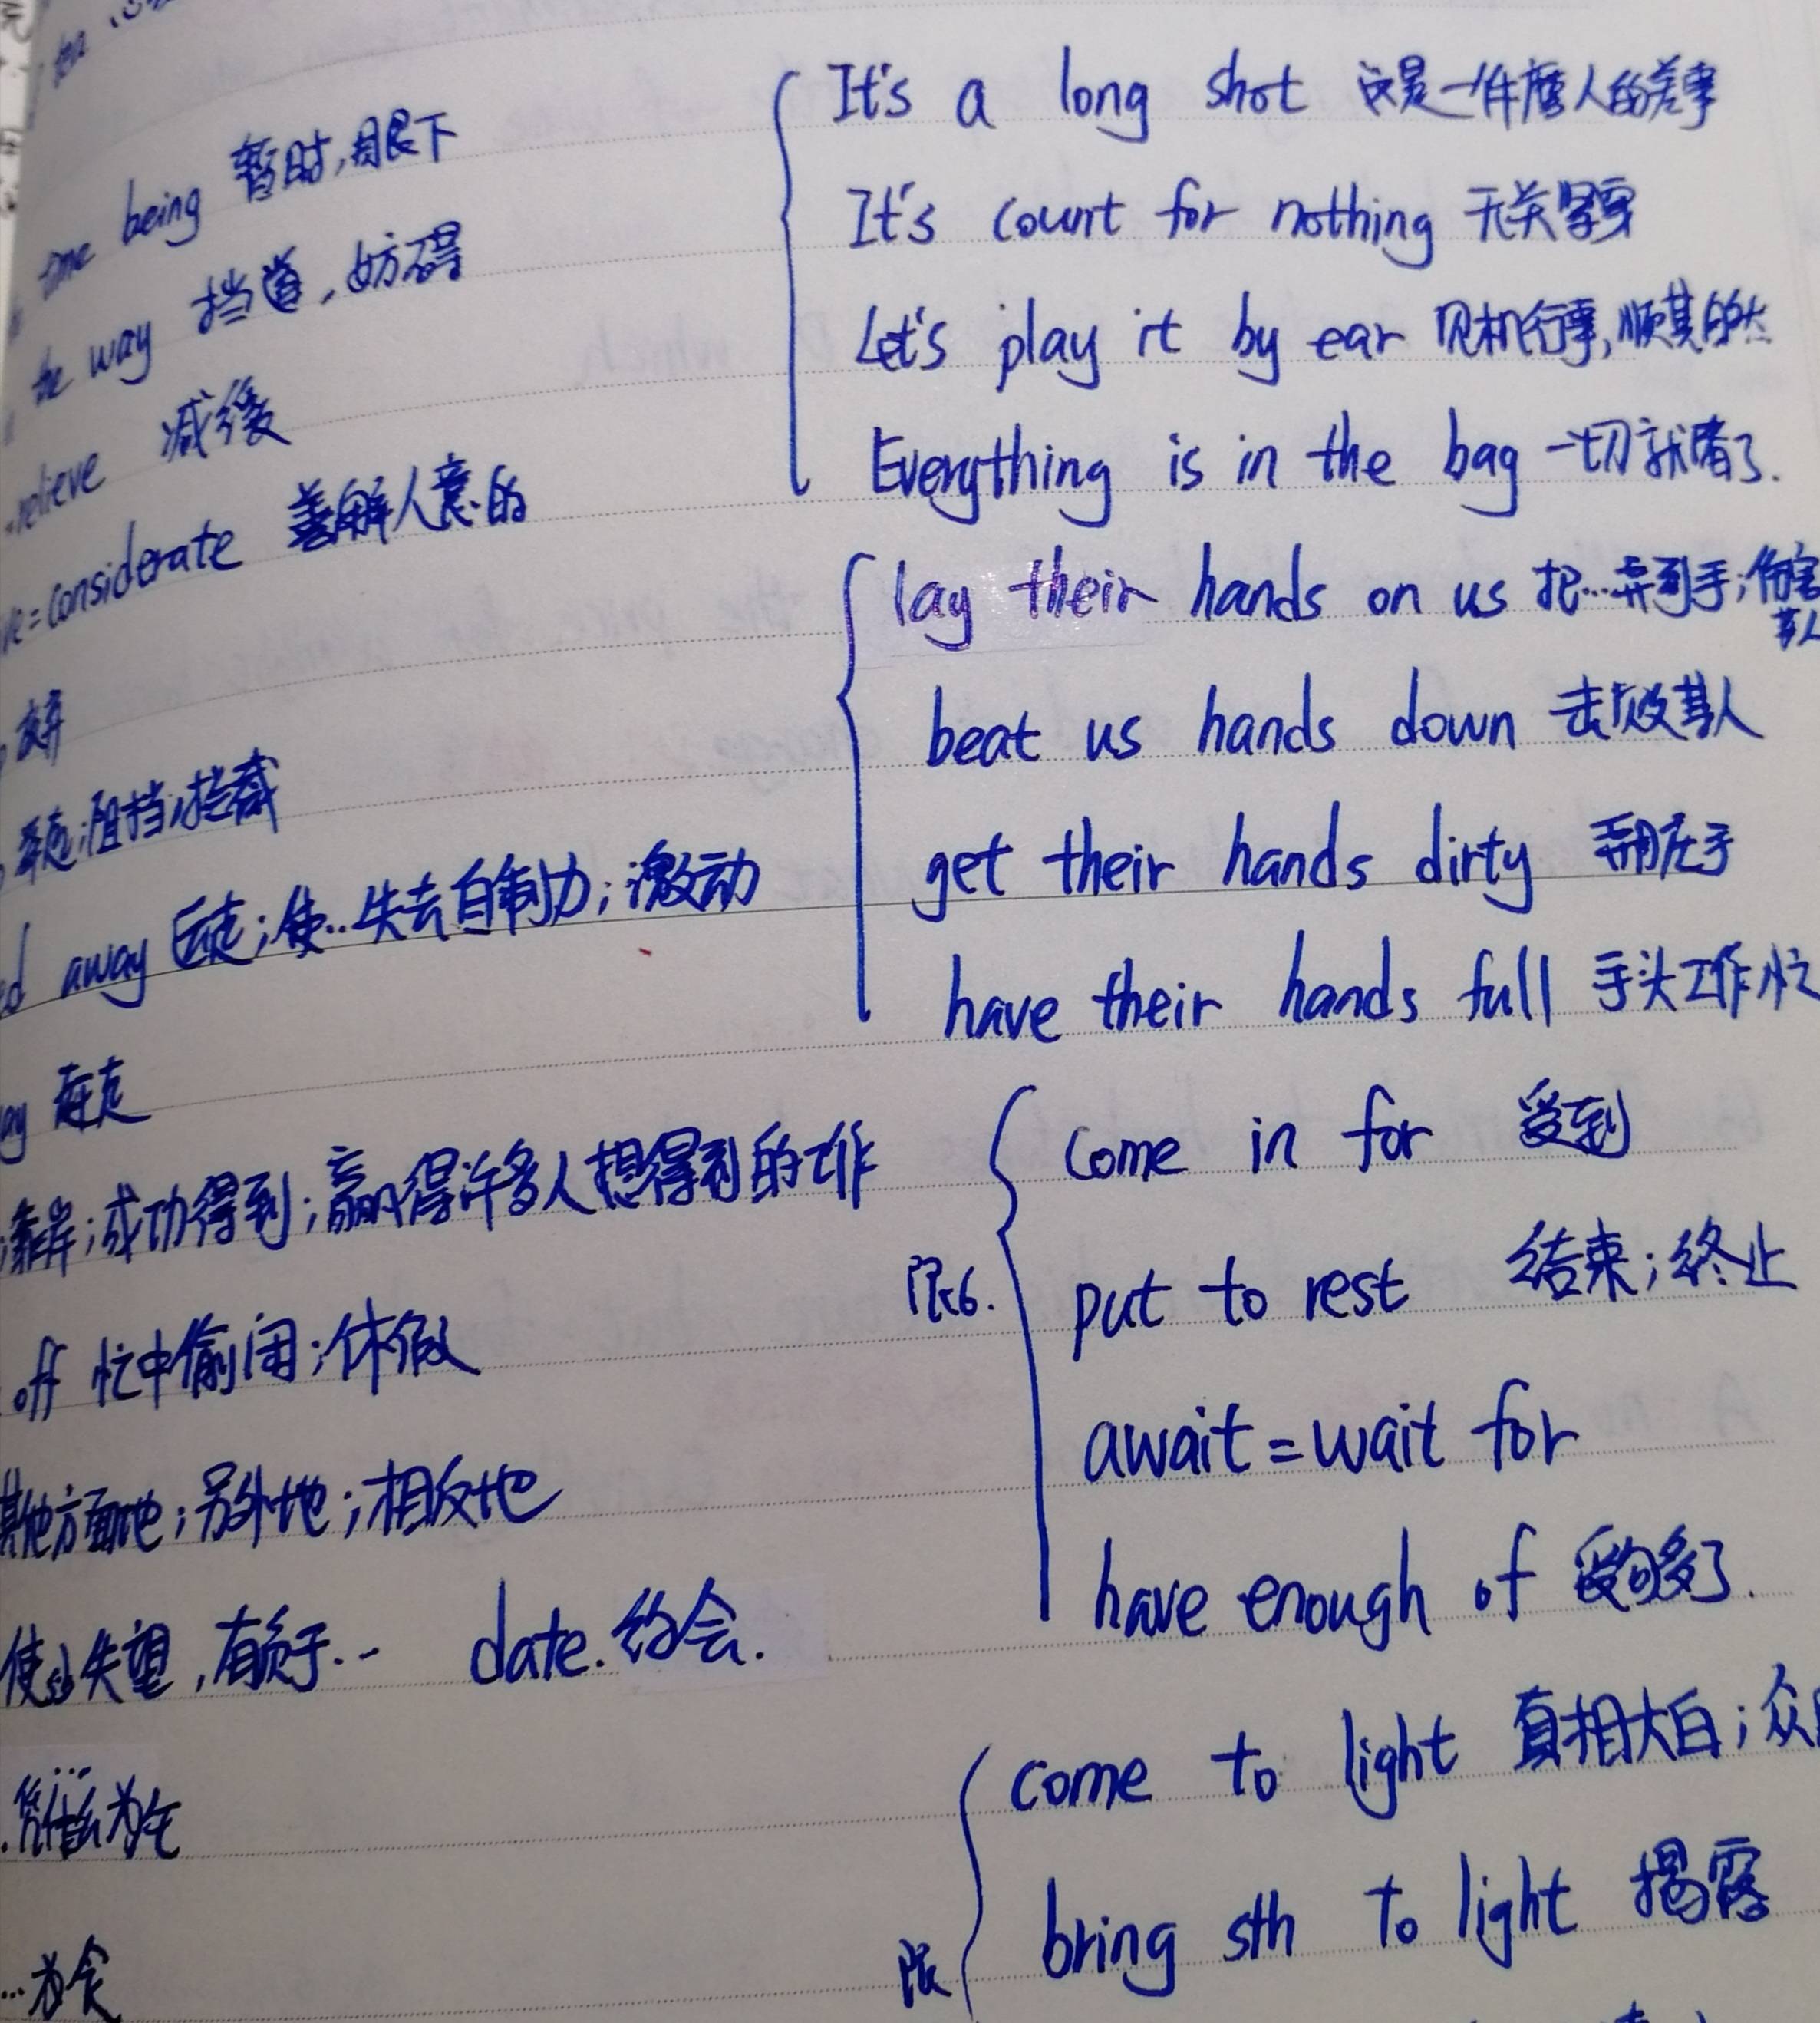 being 暂时,眼下
the way 挡道,妨碍
relieve 减缓
=considerate 善解人意的
弃
阻挡;拦截
away 运走;使..失去自制力;激动
靠岸;成功得到;赢得许多人想得到的工作
off 忙中偷闲;休假
其他方面地;另外地;相反地
使sb失望,有负于... date.约会.
...为食
It's a long shot 这是一件磨人的差事
It's count for nothing 无关紧要
Let's play it by ear 见机行事,顺其自然
Everything is in the bag 一切就绪了.
lay their hands on us 把...弄到手;伤害某人
beat us hands down 击败某人
get their hands dirty 弄脏手
have their hands full 手头工作忙
come in for 受到
put to rest 结束;终止
await=wait for
have enough of 受够多了.
come to light 真相大白;众
bring sth to light 揭露